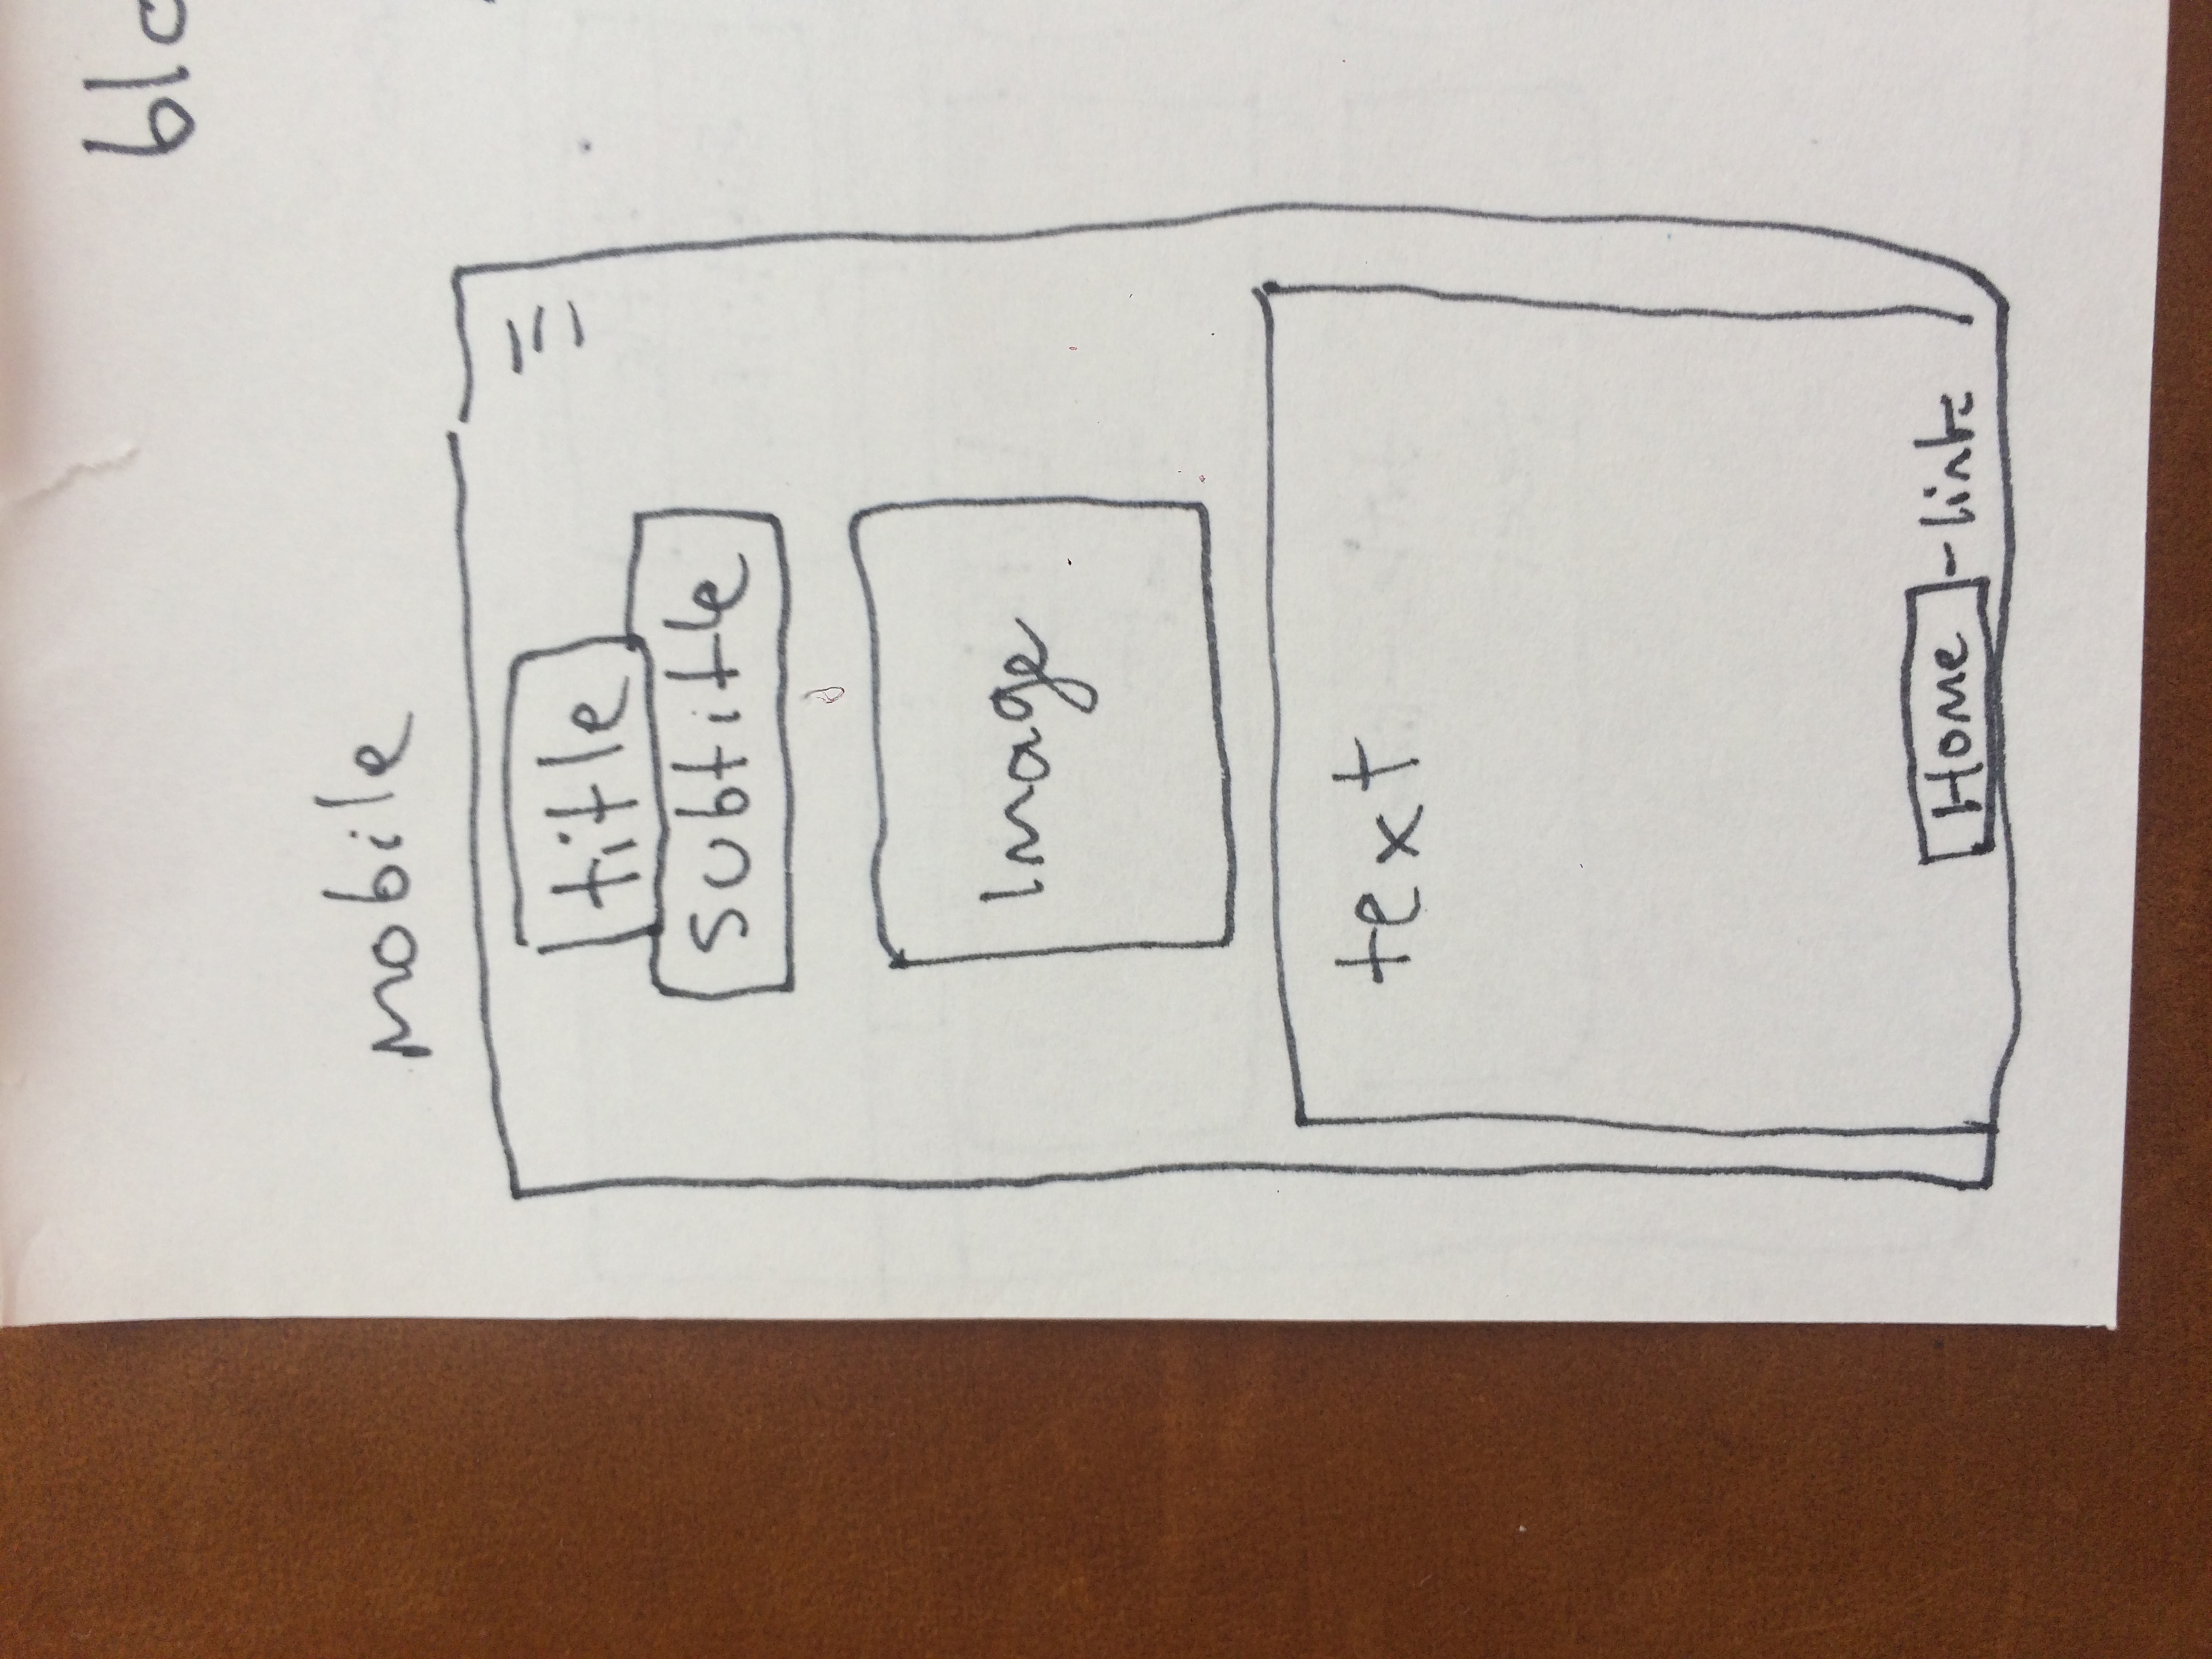 mobile
title
subtitle
Image
text
Home - link